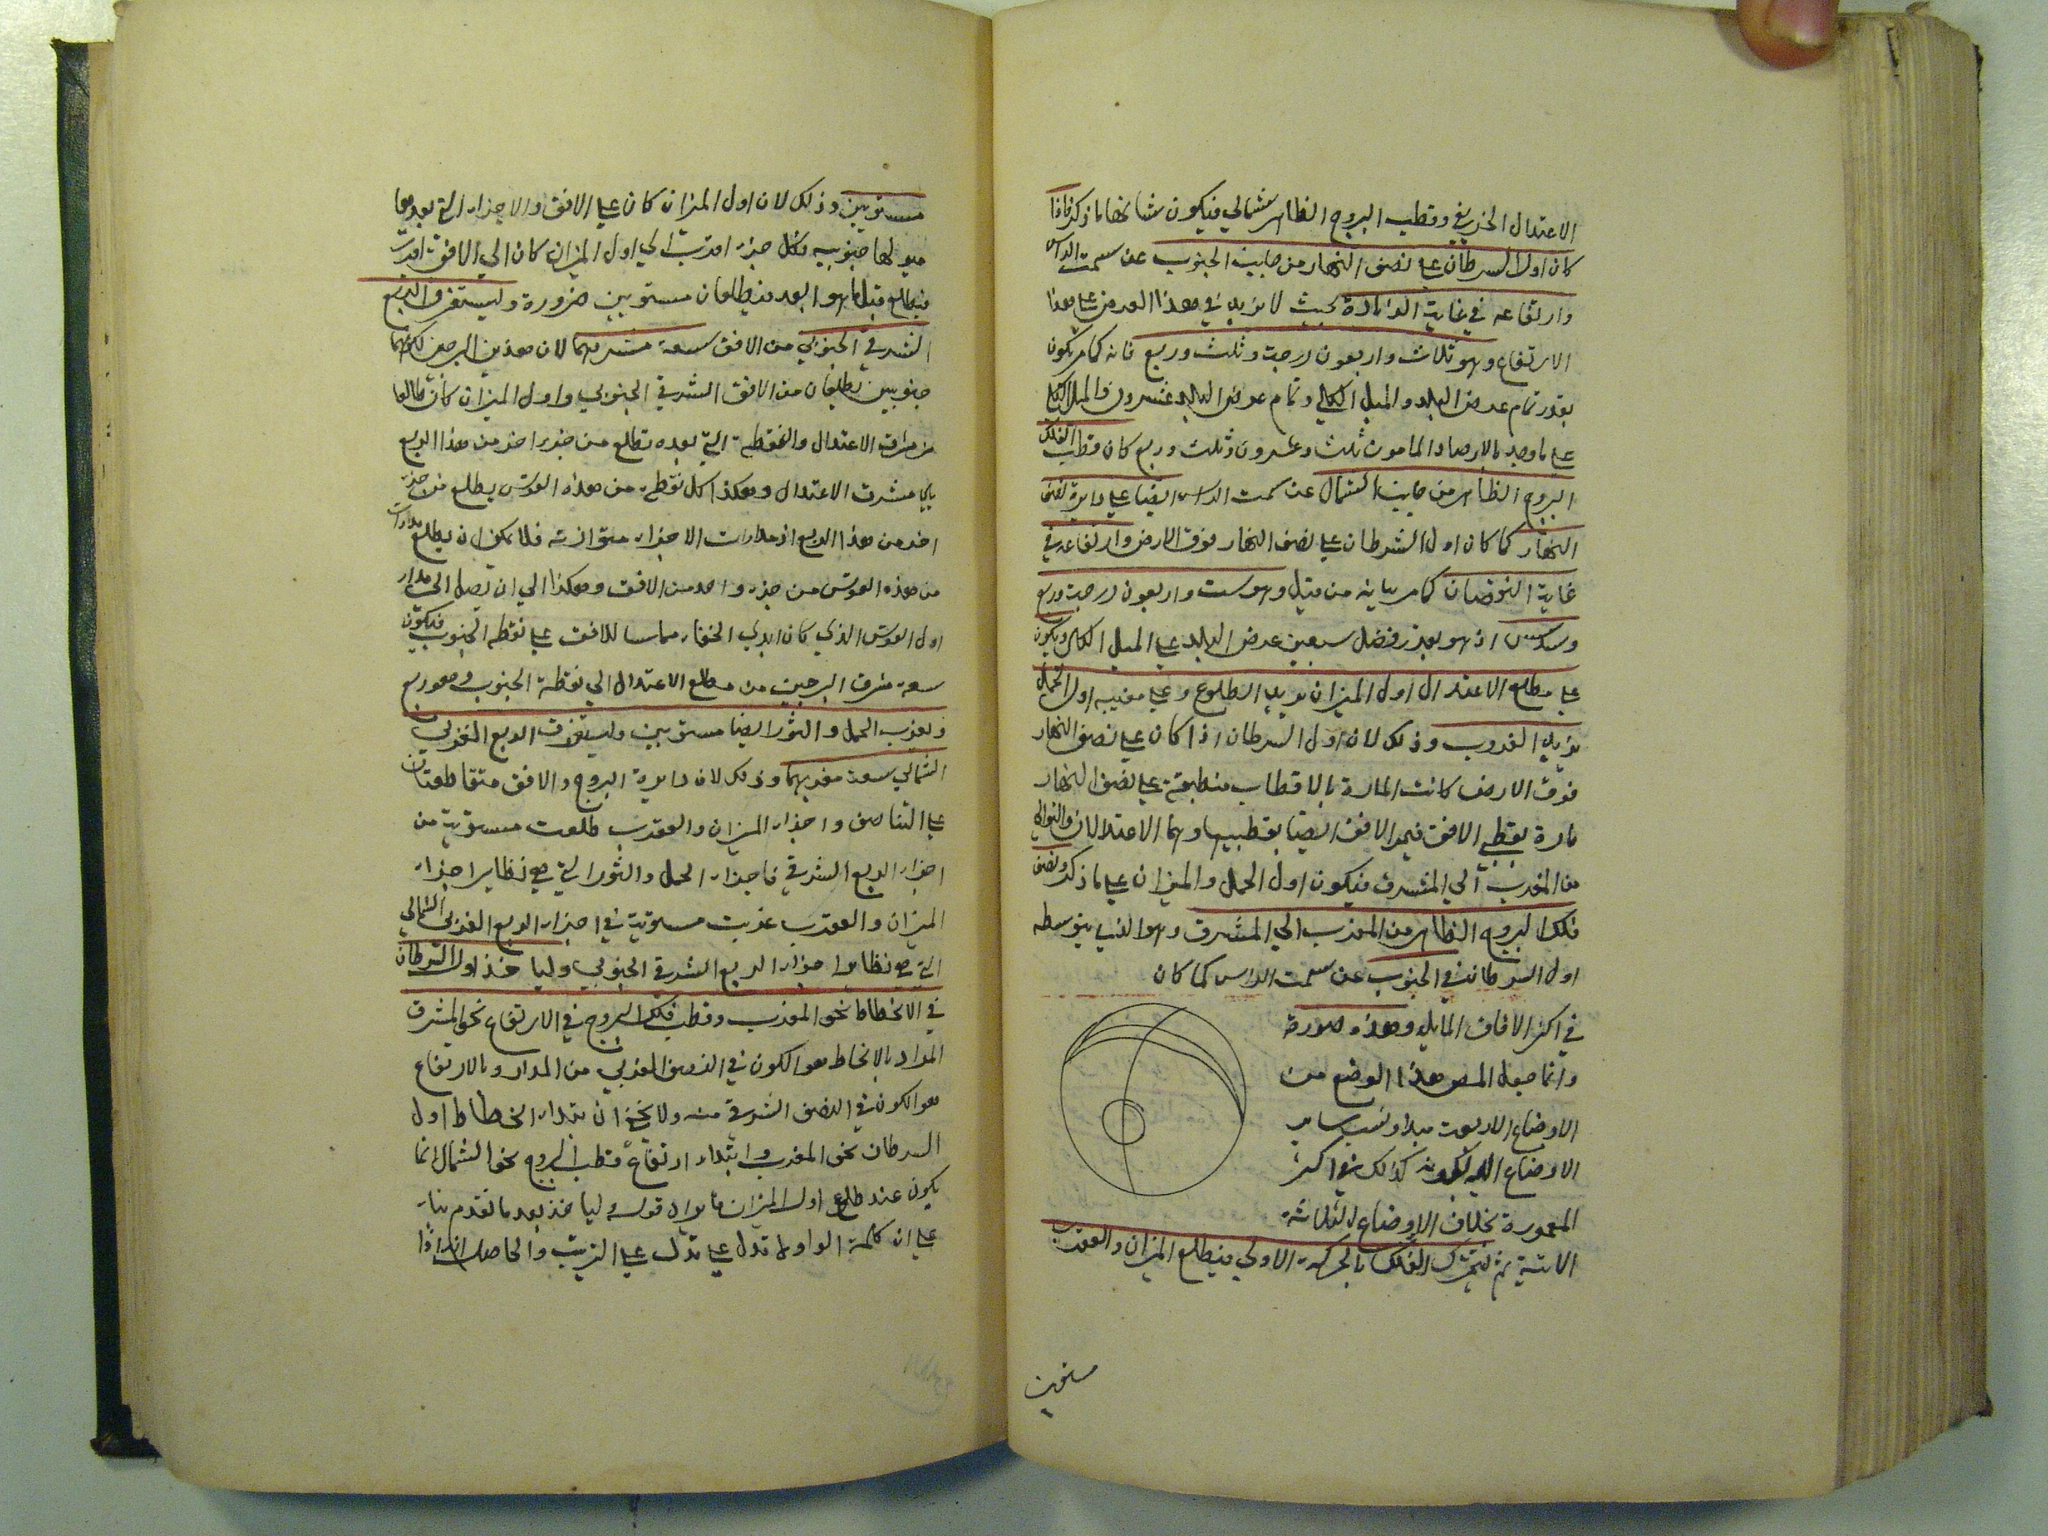 الاعتدال الخريفي وقطب البروج الظاهر شمالي فيكون شانها ما ذكر فاذا
كان اول السرطان على نصف النهار من جانب الجنوب عن سمت الراس
وارتفاعه في غاية الزيادة بحيث لا يزيد في هذا العرض على هذا
الارتفاع وهو ثلاث واربعون درجة وثلث وربع فانه كما مر يكون
بقدر تمام عرض البلد والميل الكلي وتمام عرض البلد عشرون والميل الكلي
على ما وجد بالارصاد المامون ثلث وعشرون وثلث وربع كان قطب الفلك
البروج الظاهر من جانب الشمال عن سمت الراس ايضا على دايرة نصف
النهار كما كان اول السرطان على نصف النهار فوق الارض وارتفاعه في
غاية النقصان كما مر بيانه من قبل وهو ست واربعون درجة وربع
وسدس اذ هو بقدر فضل سبعين عرض البلد على الميل الكلي ويكون
على مطلع الاعتدال اول الميزان يريد الطلوع وعلى مغيبه اول الحمل
يريد الغروب وذلك لان اول السرطان اذا كان على نصف النهار
فوق الارض كانت المارة بالاقطاب منطبقة على نصف النهار
مارة بقطبي الافق فيمر الافق ايضا بقطبيها وهما الاعتدالان والتوالي
من المغرب الي المشرق فيكون اول الحمل والميزان على ما ذكر ونصف
فلك البروج الظاهر من المغرب الي المشرق وهو الذي يتوسطه
اول السرطان في الجنوب عن سمت الراس كما كان
في اكثر الافاق المايله وهذه صورة
وانما جعل المص هذا الوضع من
الاوضاع الاربعة مبدا ونسب ساير
الاوضاع اليه لكونه كذالك في اكثر
المعمورة بخلاف الاوضاع الثلاثة
الاتية ثم ليتحرك الفلك بالحركة الاولي فيطلع الميزان والعقرب
مستويين
مستويين وذلك لان اول الميزان كان على الافق والاجزاء التي بعدها
ميولها جنوبيه فكل جزء اقرب الي اول الميزان كان الي الافق اقرب
فيطلع قبل ما هو ابعد فيطلعان مستويين ضرورة وليستغرق الربع
الشرقي الجنوبي من الافق سعة مشرقهما لان هذين البرجين لكونهما
جنوبيين يطلعان من الافق الشرقي الجنوبي واول الميزان كان طالعا
من مشرق الاعتدال والنقطة التي بعده تطلع من جزء اخر من هذا الربع
يلي مشرق الاعتدال وهكذا كل نقطة من هذه القوس يطلع من جزء
اخر من هذا الربع اذ مدارات الاجزاء متوازية فلا يمكن ان يطلع مدارات
من هذه القوس من جزء واحد من الافق وهكذا الي ان تصل الي مدار
اول القوس الذي كان ابدي الخفاء مماسا للافق على نقطة الجنوب فيكون
سعة مشرق البرجين من مطلع الاعتدال الي نقطة الجنوب وهو ربع
ويغرب الحمل والثور ايضا مستويين وليستغرق الربع الغربي
الشمالي سعة مغربهما وذلك لان دايرة البروج والافق متقاطعتان
على التناصف واجزاء الميزان والعقرب طلعت مستوية من
اجزاء الربع الشرقي فاجزاء الحمل والثور التي هي نظاير اجزاء
الميزان والعقرب غربت مستوية في اجزاء الربع الغربي الشمالي
التي هي نظاير اجزاء الربع الشرقي الجنوبي وليا خذ اول السرطان
في الانحطاط نحو المغرب وقطب فلك البروج في الارتفاع نحو المشرق
المراد بالانحطاط هو الكون في النصف الغربي من المدار وبالارتفاع
هو الكون في النصف الشرقي منه ولا يخفي ان ابتداء انحطاط اول
السرطان نحو المغرب وابتداء ارتفاع قطب البروج نحو الشمال انما
يكون عند طلوع اول الميزان فايراد قوله وليا خذ بعد ما تقدم بناء
على ان كلمة الواو لا تدل على تدل على الترتيب والحاصل انه اذا